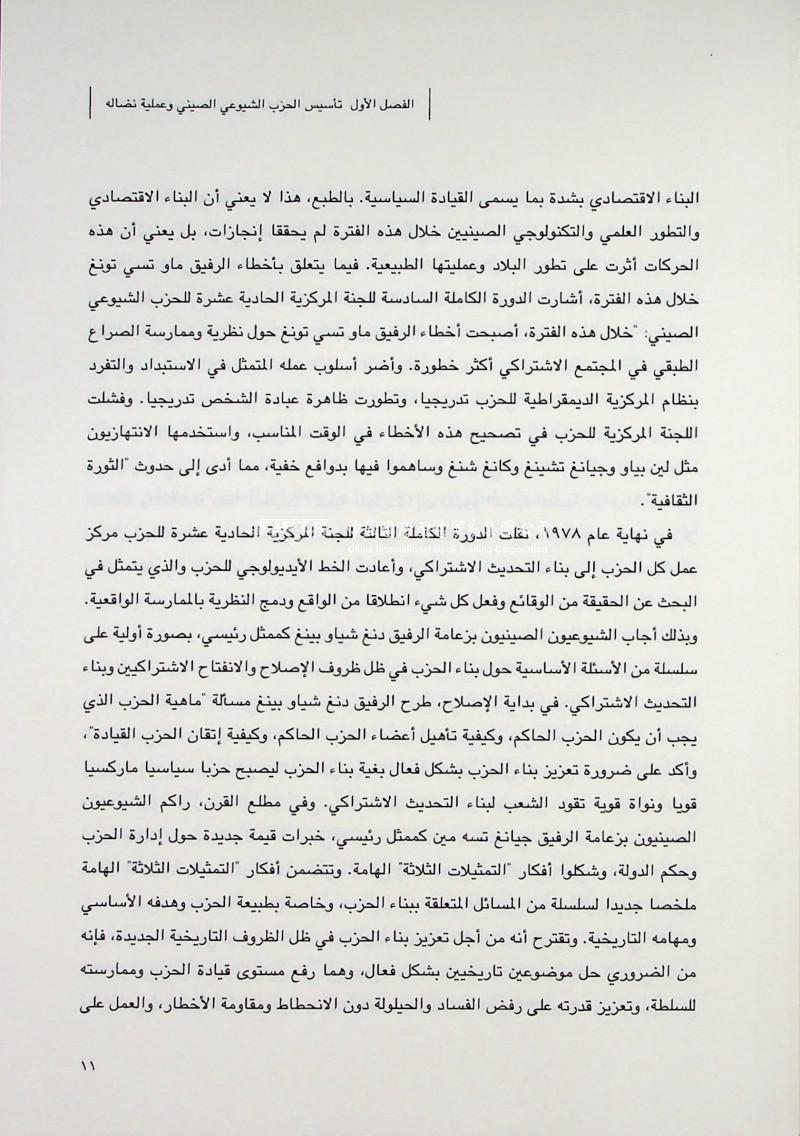 الفصل الأول تأسيس الحزب الشيوعي الصيني وعملية نضاله
البناء الاقتصادي بشدة بما يسمى القيادة السياسية. بالطبع، هذا لا يعني أن البناء الاقتصادي
والتطور العلمي والتكنولوجي الصينيين خلال هذه الفترة لم يحققا إنجازات، بل يعني أن هذه
الحركات أثرت على تطور البلاد وعمليتها الطبيعية. فيما يتعلق بأخطاء الرفيق ماو تسي تونغ
خلال هذه الفترة، أشارت الدورة الكاملة السادسة للجنة المركزية الحادية عشرة للحزب الشيوعي
الصيني: "خلال هذه الفترة، أصبحت أخطاء الرفيق ماو تسي تونغ حول نظرية وممارسة الصراع
الطبقي في المجتمع الاشتراكي أكثر خطورة. وأضر أسلوب عمله المتمثل في الاستبداد والتفرد
بنظام المركزية الديمقراطية للحزب تدريجيا، وتطورت ظاهرة عبادة الشخص تدريجيا. وفشلت
اللجنة المركزية للحزب في تصحيح هذه الأخطاء في الوقت المناسب، واستخدمها الانتهازيون
مثل لين بياو وجيانغ تشينغ وكانغ شنغ وساهموا فيها بدوافع خفية، مما أدى إلى حدوث "الثورة
الثقافية".
في نهاية عام ١٩٧٨، نقلت الدورة الكاملة الثالثة للجنة المركزية الحادية عشرة للحزب مركز
China International Book Trading Corporation
عمل كل الحزب إلى بناء التحديث الاشتراكي، وأعادت الخط الأيديولوجي للحزب والذي يتمثل في
البحث عن الحقيقة من الوقائع وفعل كل شيء انطلاقا من الواقع ودمج النظرية بالممارسة الواقعية.
وبذلك أجاب الشيوعيون الصينيون بزعامة الرفيق دنغ شياو بينغ كممثل رئيسي، بصورة أولية على
سلسلة من الأسئلة الأساسية حول بناء الحزب في ظل ظروف الإصلاح والانفتاح الاشتراكيين وبناء
التحديث الاشتراكي. في بداية الإصلاح، طرح الرفيق دنغ شياو بينغ مسألة "ماهية الحزب الذي
يجب أن يكون الحزب الحاكم، وكيفية تأهيل أعضاء الحزب الحاكم، وكيفية إتقان الحزب القيادة"،
وأكد على ضرورة تعزيز بناء الحزب بشكل فعال بغية بناء الحزب ليصبح حزبا سياسيا ماركسيا
قويا ونواة قوية تقود الشعب لبناء التحديث الاشتراكي. وفي مطلع القرن، راكم الشيوعيون
الصينيون بزعامة الرفيق جيانغ تسه مين كممثل رئيسي، خبرات قيمة جديدة حول إدارة الحزب
وحكم الدولة، وشكلوا أفكار "التمثيلات الثلاثة" الهامة. وتتضمن أفكار "التمثيلات الثلاثة" الهامة
ملخصا جديدا لسلسلة من المسائل المتعلقة ببناء الحزب، وخاصة بطبيعة الحزب وهدفه الأساسي
ومهامه التاريخية. وتقترح أنه من أجل تعزيز بناء الحزب في ظل الظروف التاريخية الجديدة، فإنه
من الضروري حل موضوعين تاريخيين بشكل فعال، وهما رفع مستوى قيادة الحزب وممارسته
للسلطة، وتعزيز قدرته على رفض الفساد والحيلولة دون الانحطاط ومقاومة الأخطار، والعمل على
١١